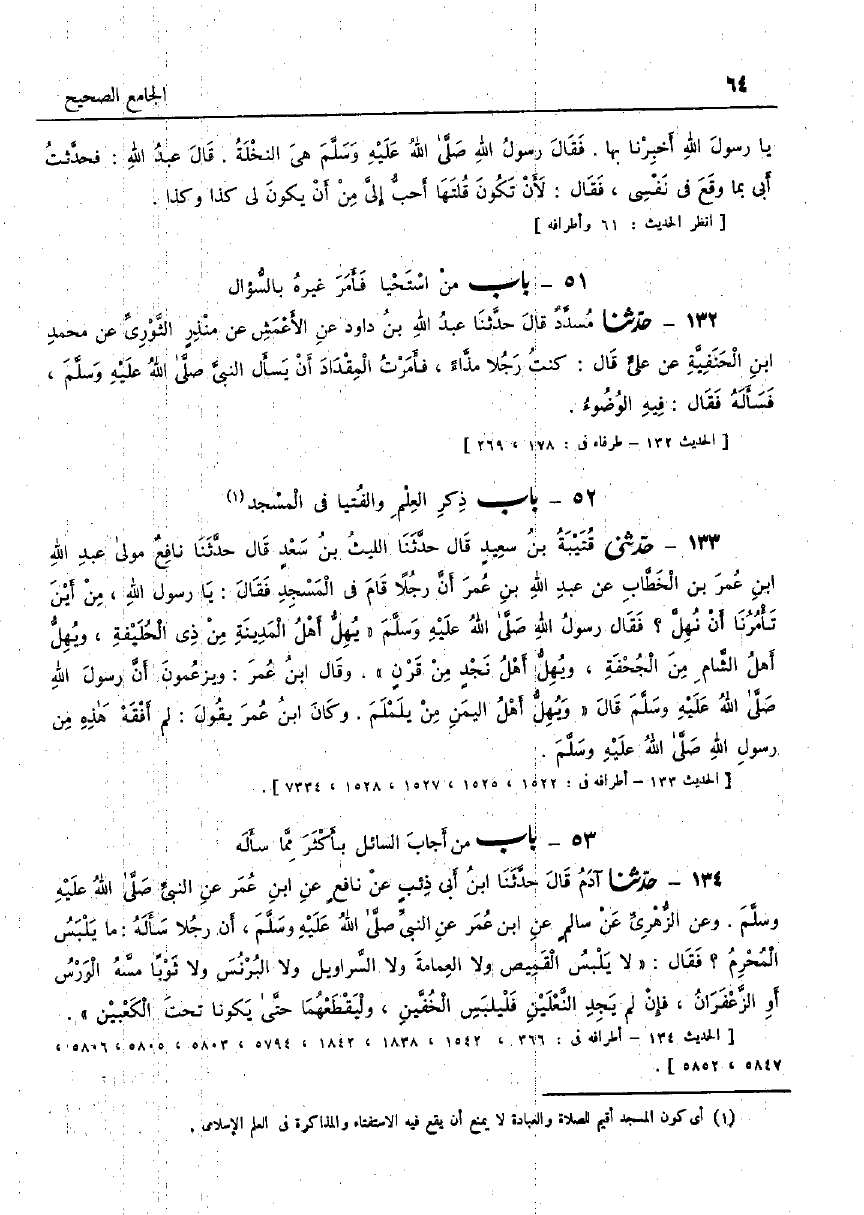 ٦٤
الجامع الصحيح
يا رسولَ اللهِ أَخبِرْنا بها . فَقَالَ رسولُ اللهِ صَلَّىٰ اللهُ عَلَيْهِ وَسَلَّمَ هىَ النخْلَةُ . قَالَ عبدُ اللهِ : فحدَّثتُ
أبى بما وقَعَ فى نَفْسِى ، فقَال : لَأَنْ تَكُونَ قُلتَهَا أحبُّ إلىَّ مِنْ أَنْ يكونَ لى كذا وكذا .
[ انظر الحديث : ٦١ وأطرافه ]
٥١ – باب منْ اسْتَحْيا فَأَمَرَ غيرهُ بالسُّؤال
١٣٢ – حدّثنا مُسدَّدٌ قالَ حدَّثنَا عبدُ اللهِ بنُ داود عنِ الأَعْمَشِ عن منْذِرٍ الثَّوْرِىِّ عن محمدِ
ابنِ الْحَنَفِيَّةِ عن علىٍّ قَال : كنتُ رَجُلا مذَّاءً ، فأمَرْتُ الْمِقْدَادَ أَنْ يَسأَل النبىَّ صلَّىٰ اللهُ علَيْهِ وَسَلَّمَ ،
فَسَأَلَهُ فَقَال : فِيهِ الوُضُوءُ .
[ الحديث ١٣٢ – طرفاه فى : ١٧٨ ، ٢٦٩ ]
٥٢ – باب ذِكرِ العِلْمِ والفُتيا فى الْمسْجد (١)
١٣٣ – حدّثنى قُتَيْبَةُ بنُ سعِيدٍ قَال حدَّثَنَا الليثُ بنُ سَعْدٍ قَال حدَّثَنَا نافِعٌ مولىٰ عبدِ اللهِ
ابنِ عُمرَ بن الْخَطَّابِ عن عبدِ اللهِ بنِ عُمرَ أنَّ رجُلًا قَامَ فى الْمَسْجِدِ فَقَالَ : يَا رسول اللهِ ، مِنْ أَيْنَ
تَأْمُرُنَا أَنْ نُهِلَّ ؟ فَقَال رسولُ اللهِ صَلَّىٰ اللهُ عَلَيْهِ وَسَلَّمَ « يُهِلُّ أهْلُ الْمَدِينَةِ مِنْ ذِى الْحُلَيْفةِ ، ويُهِلُّ
أهلُ الشَّامِ مِنَ الْجُحْفَةِ ، ويُهِلُّ أهْلُ نَجْدٍ مِنْ قَرْنٍ » . وقَال ابنُ عُمرَ : ويزعُمونَ أنَّ رسولَ اللهِ
صَلَّىٰ اللهُ عَلَيْهِ وسَلَّمَ قَالَ « وَيُهِلُّ أهْلُ اليمَنِ مِنْ يلَمْلَمَ . وكَانَ ابنُ عُمرَ يقُولَ : لم أَفْقَهْ هَٰذِهِ مِن
رسولِ اللهِ صَلَّىٰ اللهُ علَيْهِ وسَلَّمَ .
[ الحديث ١٣٣ – أطرافه فى : ١٥٢٢ ، ١٥٢٥ ، ١٥٢٧ ، ١٥٢٨ ، ٧٣٣٤ ] .
٥٣ – باب من أجابَ السائل بأَكْثَرَ مِمَّا سألَه
١٣٤ – حدّثنا آدَمُ قَالَ حدَّثَنَا ابنُ أبى ذِئبٍ عنْ نافعٍ عنِ ابنِ عُمَر عنِ النبىِّ صَلَّىٰ اللهُ عَلَيْهِ
وسلَّمَ . وعن الزُّهْرِىِّ عَنْ سالمٍ عنِ ابن عُمَر عنِ النبىِّ صلَّىٰ اللهُ عَلَيْهِ وسَلَّمَ ، أن رجُلا سَأَلهُ : ما يَلْبَسُ
الْمُحْرِمُ ؟ فقَال : « لا يَلْبسُ الْقَمِيص ولا العِمامةَ ولا السَّراويل ولا البُرْنُسَ ولا ثَوْبًا مسَّهُ الْوَرْسُ
أوِ الزَّعْفَرَانُ ، فإنْ لم يَجِدِ النَّعْلَيْنِ فَلْيلبَسِ الْخُفَّينِ ، ولْيَقْطَعْهُمَا حتَّىٰ يَكونا تحتَ الْكَعْبيْنِ » .
[ الحديث ١٣٤ – أطرافه فى : ٣٦٦ ، ١٥٤٢ ، ١٨٣٨ ، ١٨٤٢ ، ٥٧٩٤ ، ٥٨٠٣ ، ٥٨٠٥ ، ٥٨٠٦ ،
٥٨٤٧ ، ٥٨٥٢ ] .
(١) أى كون المسجد أقيم للصلاة والعبادة لا يمنع أن يقع فيه الاستفتاء والمذاكرة فى العلم الإسلامى .